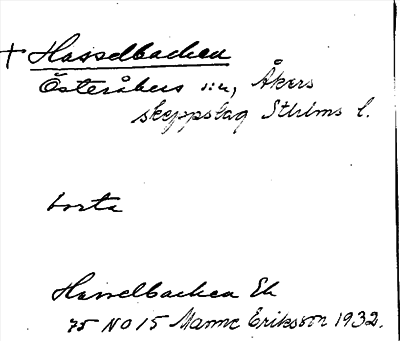 + Hasselbacken
Österåkers s:n, Åkers
skeppslag Sthlms l.
borta
Hasselbacken Ek
75 NO 15 Manne Eriksson 1932.